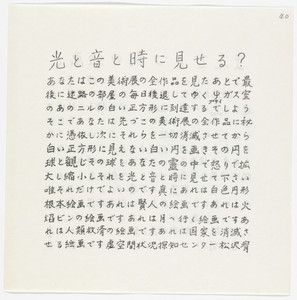 80
光と音と時に見せる?
あなたはこの美術展の全作品を見たあとで最
後に迷路の部屋の毎日後退してゆく虫ガス室
のあのニルの白い正方形に到達するでしよう
そこであなたは先づこの美術展の全作品に秋
かに憑依し次にそれらを一切消滅させてから
白い正方形に見えない白い円を画きその円を
球と観じその球をあなたの霊の中で怒り拡
大し縮小しそれを光と音と時に見せて下さい
唯それだけでよいのです真にあれは白色円形
根本絵画ですあれは賢人の絵画ですあれは火
焔ビンの絵画ですあれは月へ行く絵画ですあ
れは人類救済の絵画ですあれは国家を消滅さ
せる絵画です虚空間状況探知センター松沢宥